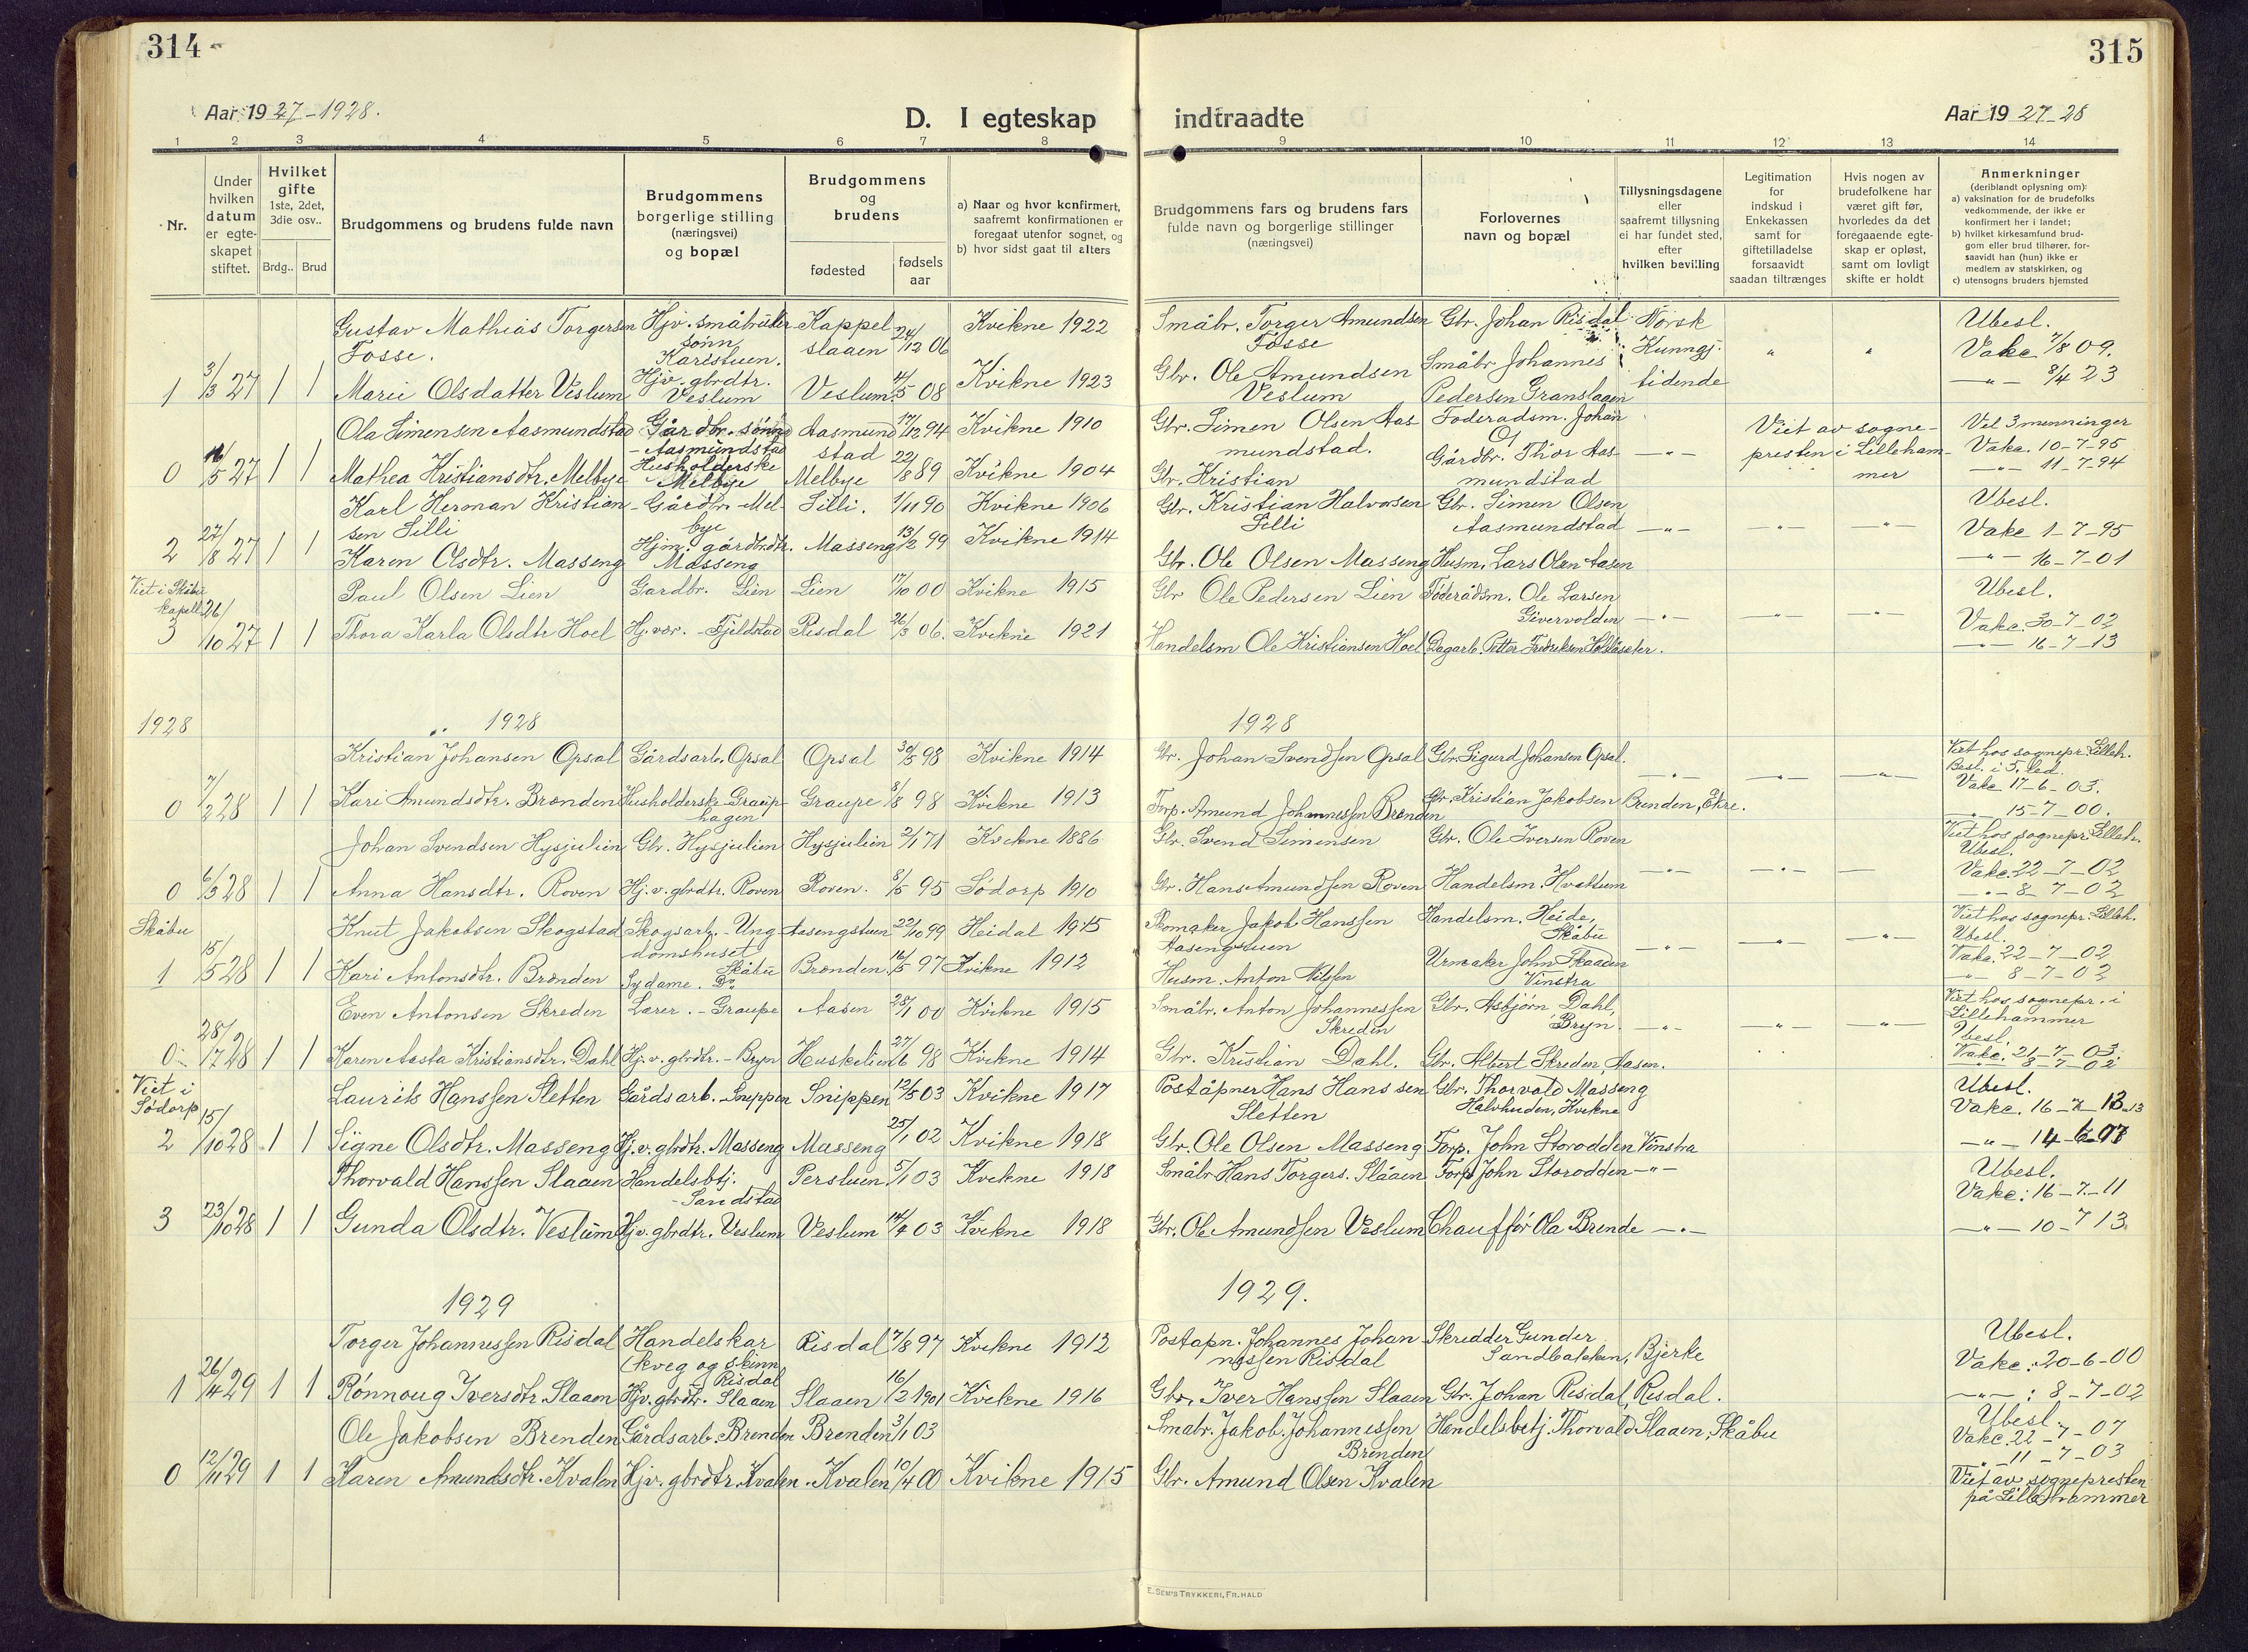 314
Aar 1927-1928.
D. I egteskap
1 2 3 4 5 6 7 8
Nr.
Under hvilken datum er egteskapet stiftet.
Hvilket gifte 1ste, 2det, 3die osv..
Brdg.. Brud
Brudgommens og brudens fulde navn
Brudgommens borgerlige stilling (næringsvei) og bopæl
Brudgommens og brudens
fødested
fødsels aar
a) Naar og hvor konfirmert, saafremt konfirmationen er foregaat utenfor sognet, og
b) hvor sidst gaat til alters
Gustav Mathias Torgersen Hjv. småbruker Kappel 24/12 06 Kvikne 1922
Fosse. sønn Karistuen. slaaen
1 3/3 27 1 1 Marie Olsdatter Veslum Hjv. gbrdtr. Veslum Veslum 4/5 08 Kvikne 1923
Ola Simensen Aasmundstad Gårdbr. sønn Aasmund 17/12 94 Kvikne 1910
- Aasmundstad stad
0 16/5 27 1 1 Mathea Kristiansdtr. Melbye Husholderske Melbye Melbye 22/8 89 Kvikne 1904
Karl Herman Kristian- Gårdbr. Mel- Lilli. 1/11 90 Kvikne 1906
sen Lilli bye
2 27/8 27 1 1 Karen Olsdtr. Masseng Hjm. gårdbrdtr. Masseng Masseng 13/2 99 Kvikne 1914
Viet i Skåbu kapell
Paul Olsen Lien Gardbr. Lien Lien 17/10 00 Kvikne 1915
3 26/10 27 1 1 Thora Karla Olsdtr Hoel Hj. vær. - Fjeldstad Risdal 26/3 06. Kvikne 1921
1928 1928
Kristian Johansen Opsal Gårdsarb. Opsal Opsal 30/5 98 Kvikne 1914
0 7/2 28 1 1 Kari Amundsdtr. Brænden Husholdersk. Graup- Graupe 8/8 98 Kvikne 1913
hagen
Johan Svendsen Hysjulien Gbr. Hysjulien Hysjulien 2/1 71 Kvikne 1886
0 6/3 28 1 1 Anna Hansdtr. Roven Hj. v. gbrdtr. Roven Roven. 8/5 95 Sødorp 1910
Skåbu Knut Jakobsen Skogstad Skogsarb. - Ung- Aasengstuen 22/10 99 Heidal 1915
domshuset
1 15/5 28 1 1 Kari Antonsdtr. Brænden Sydame. Skåbu Brænden. 16/5 97 Kvikne 1912
Even Antonsen Skreden Lærer. - Graupe Aasen 25/1 00 Kvikne 1915
0 28/7 28 1 1 Karen Aasta Kristiansdtr. Dahl Hj. v. gbrdtr. - Bryn Huskelien 27/6 98 Kvikne 1914
Viet i Sødorp
Laurits Hanssen Sletten Gårdsarb. - Snippen Snippen 12/5 03 Kvikne 1917
2 15/10 28 1 1 Signe Olsdtr. Masseng Hj. v. gbrdtr. Masseng Masseng 25/1 02 Kvikne 1918
Thorvald Hanssen Slaaen Handelsbtj. Perstuen 5/1 03 Kvikne 1918
- Sandstad
3 23/10 28 1 1 Gunda Olsdtr. Veslum Hj. v. gbrdtr. Veslum Veslum 14/4 03 Kvikne 1918
1929
Torger Johannessen Risdal Handelskar Risdal 7/8 97 Kvikne 1912
(kveg og skinn) Risdal
1 26/4 29 1 1 Rønnoug Iversdtr. Slaaen Hjv. gbrdtr. Slaaen Slaaen 16/2 1901 Kvikne 1916
Ole Jakobsen Brenden Gårdsarb. Brenden Brenden 3/1 03
0 12/11 29 1 1 Karen Amundsdtr. Kvalen Hjv. gbrdtr. Kvalen. Kvalen 10/4 00 Kvikne 1915
315
indtraadte
Aar 1927-28
9 10 11 12 13 14
Brudgommens fars og brudens fars fulde navn og borgerlige stillinger (næringsvei)
Forlovernes navn og bopæl
Tillysningsdagene eller saafremt tillysning ei har fundet sted, efter hvilken bevilling
Legitimation for indskud i Enkekassen samt for giftetilladelse forsaavidt saadan tiltrænges
Hvis nogen av brudefolkene har været gift før, hvorledes da det foregaaende egteskap er opløst, samt om lovligt skifte er holdt
Anmerkninger
(deriblandt oplysning om):
a) vaksination for de brudefolks vedkommende, der ikke er konfirmert her i landet;
b) hvilket kirkesamfund brudgom eller brud tilhører, forsaavidt han (hun) ikke er medlem av statskirken, og
c) utensogns bruders hjemsted
Småbr. Torger Amundsen Gbr. Johan Risdal Norsk Ubesl.
Fosse Småbr. Johannes Kunngj. " " Vakc. 7/8 09.
Gbr. Ole Amundsen Veslum Pedersen Granslaaen tidende —"— 8/4 23
Gbr. Simen Olsen Aas- Føderadsm. Johan Viet av sogne- Vel 3 menninger
mundstad. og presten i Lilleham- Vakc. 10-7-95
Gbr. Kristian Gårdbr. Thor Aas- mundstad —"— mer —"— 11-7-94
Gbr. Kristian Halvorsen Gbr. Simen Olsen Ubesl.
Lilli Aasmundstad —"— —"— —"— Vakc 1-7-95
Gbr. Ole Olsen Masseng Husm. Lars Olsen Aasen —"— 16-7-01
Gbr Ole Pedersen Lien Føderådsm. Ole Larsen Ubesl.
Givervolden —"— —"— —"— Vakc. 30-7-02
Handelsm Ole Kristiansen Hoel Dagarb. Petter Fredriksen Kolloseter. —"— 16-7-13
1928
Gbr. Johan Svendsen Opsal Gbr. Sigurd Johansen Opsal. Viet hos sognepr. Lilleh.
—"— —"— —"— Besl. i 5. led.
Vakc 17-6-03.
Forp. Amund Johannessen Brænden Gbr. Kristian Jakobsen Brenden, Ekre. 15-7-00.
Gbr. Svend Simensen Gbr. Ole Iversen Roven Viet hos sognepr. Lilleh.
Ubesl.
—"— —"— —"— Vakc. 22-7-02
Gbr. Hans Amundsen Roven Handelsm. Hvattum —"— 8-7-02
Skomaker Jakob Hanssen Handelsm. Heide, Viet hos sognepr. Lilleh.
Aasengstuen Skåbu —"— —"— —"— Ubesl.
Vakc. 22-7-02
Husm. Anton Nilssen Urmaker John Skaaden Vinstra —"— 8-7-02
Småbr. Anton Johannessen Gbr. Asbjørn Dahl, Viet hos sognepr. i
Skreden Bryn. —"— —"— —"— Lillehammer
Ubesl.
Gbr. Kristian Dahl. Gbr. Albert Skreden, Aasen. Vakc. 21-7-03.
—"— 8-7-02
Poståpner Hans Hanssen Gbr. Thorvald Masseng Ubesl.
Sletten Halvhuden, Kvikne Vakc. 16-7-13
Gbr. Ole Olsen Masseng Forp. John Storodden Vinstra —"— 14-
Småbr. Hans Torgers. Slåaen Forp John Storodden —"— Ubesl.
Vakc: 16-7-11
Gbr. Ole Amundsen Veslum Chauffør Ola Brende —"— —"— 10-7 13.
1929.
Postapn. Johannes Johan- Skredder Gunder Ubesl.
nessen Risdal Sandbakken, Bjerke Vakc: 20-6-00
Gbr. Iver Hanssen Slaaen Gbr. Johan Risdal, Risdal. —"— : 8-7-02
Smabr. Jakob Johannessen Handelsbetj. Thorvald Slaaen, Skåbu Ubesl.
Brenden Vakc. 22-7-07
" 11-7-03
Gbr. Amund Olsen Kvalen Viet av sognepresten
på Lillehammer
E. SEM'S TRYKKERI, FR.HALD